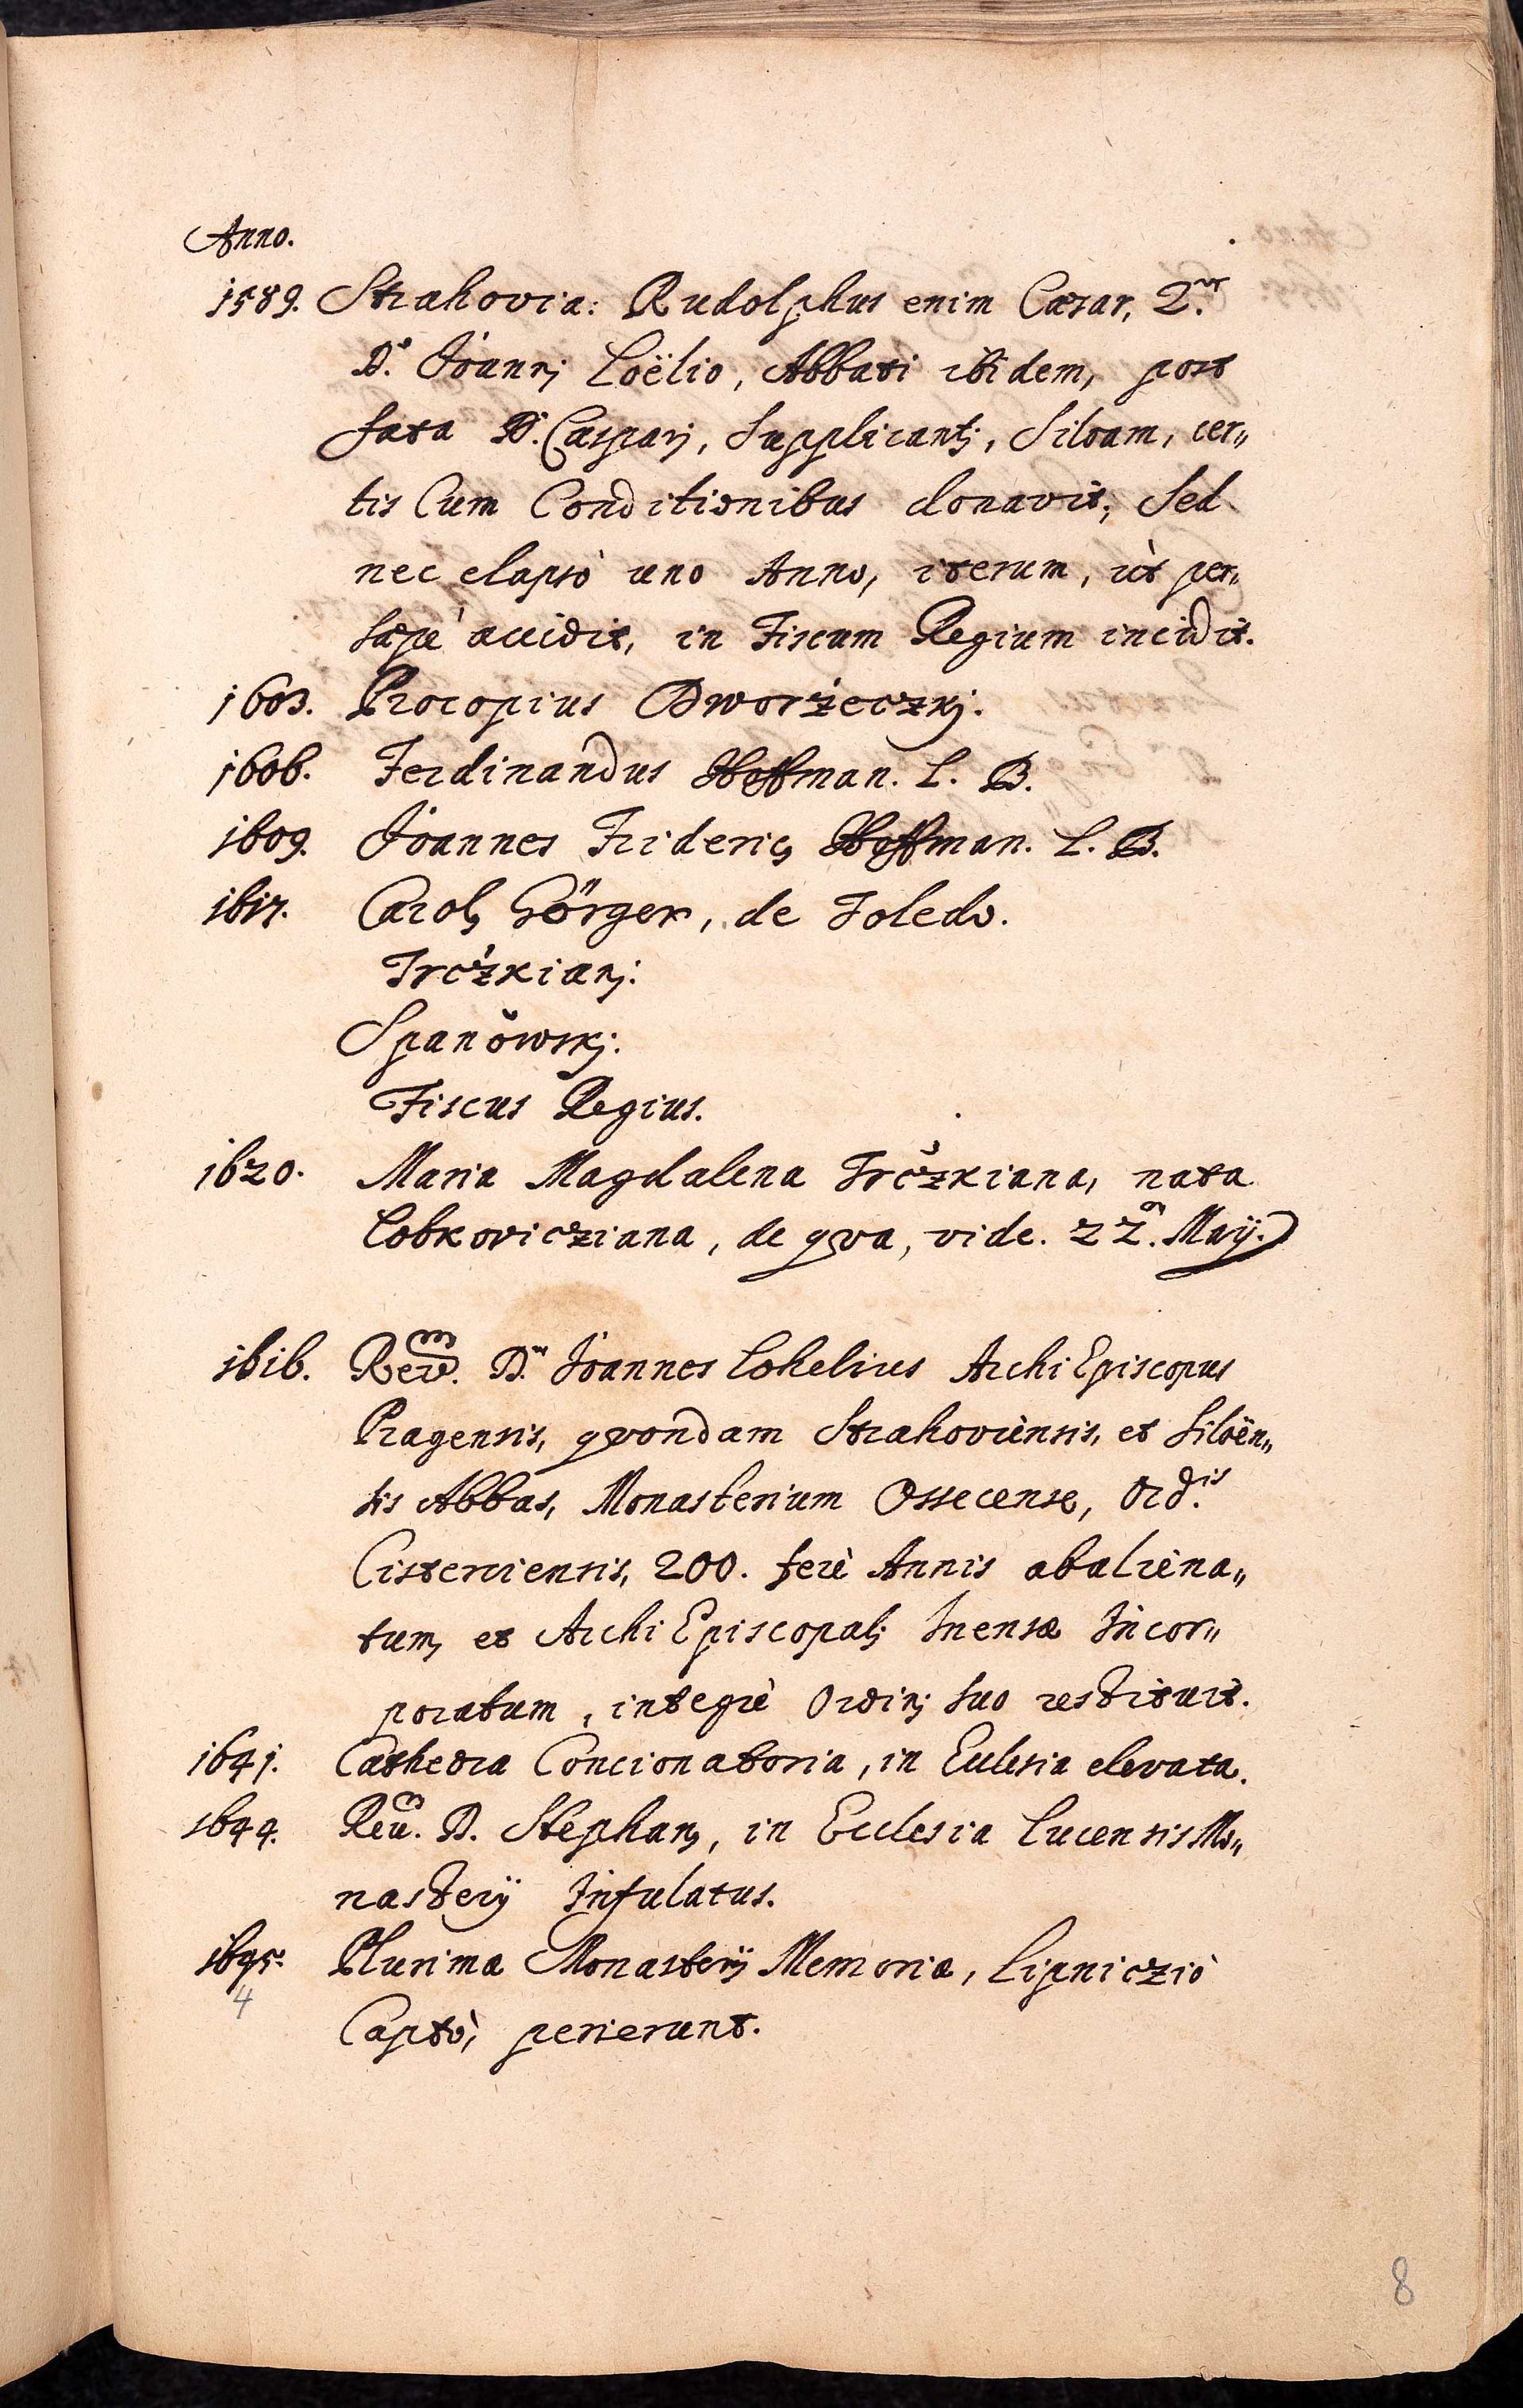 Anno.
1589. Strahovia: Rudolphus enim Cæsar, 2.us
D.o Joanni Loëlio, Abbati ibidem, post
fata D. Caspari, Supplicanti, Siloam, cer„
tis Cum Conditionibus donavit; Sed
nec elapsò uno Anno, iterum, ùt per„
sæpè accidit, in Fiscum Regium incidit.
1603. Procopius Dworżeczkj.
1606. Ferdinandus Hoffman. L. B.
1609. Joannes Frideric9 Hoffman. L. B.
1617. Carol9 Görger, de Toledo.
Trczkianj.
Spanowskj.
Fiscus Regius.
1620. Maria Magdalena Trczkiana, nata
Lobkovicziana, de qva, vide. 22. Maij.
1616. Rev.m D.n Joannes Lohelius ArchiEpiscopus
Pragensis, qvondam Strahoviensis, et Siloën„
sis Abbas, Monasterium Ossecense, Ord.is
Cisterciensis, 200. ferè Annis abaliena„
tum, et ArchiEpiscopali Mensæ Incor„
poratum, integrè Ordini suo restituit.
1641. Cathedra Concionatoria, in Ecclesia elevata.
1644. Reu.m D. Stephan9, in Ecclesia Lucensis Mo„
nasterij Infulatus.
1645. Plurimæ Monasterij Memoriæ, Lipniczio
4
Captò, perierunt.
8